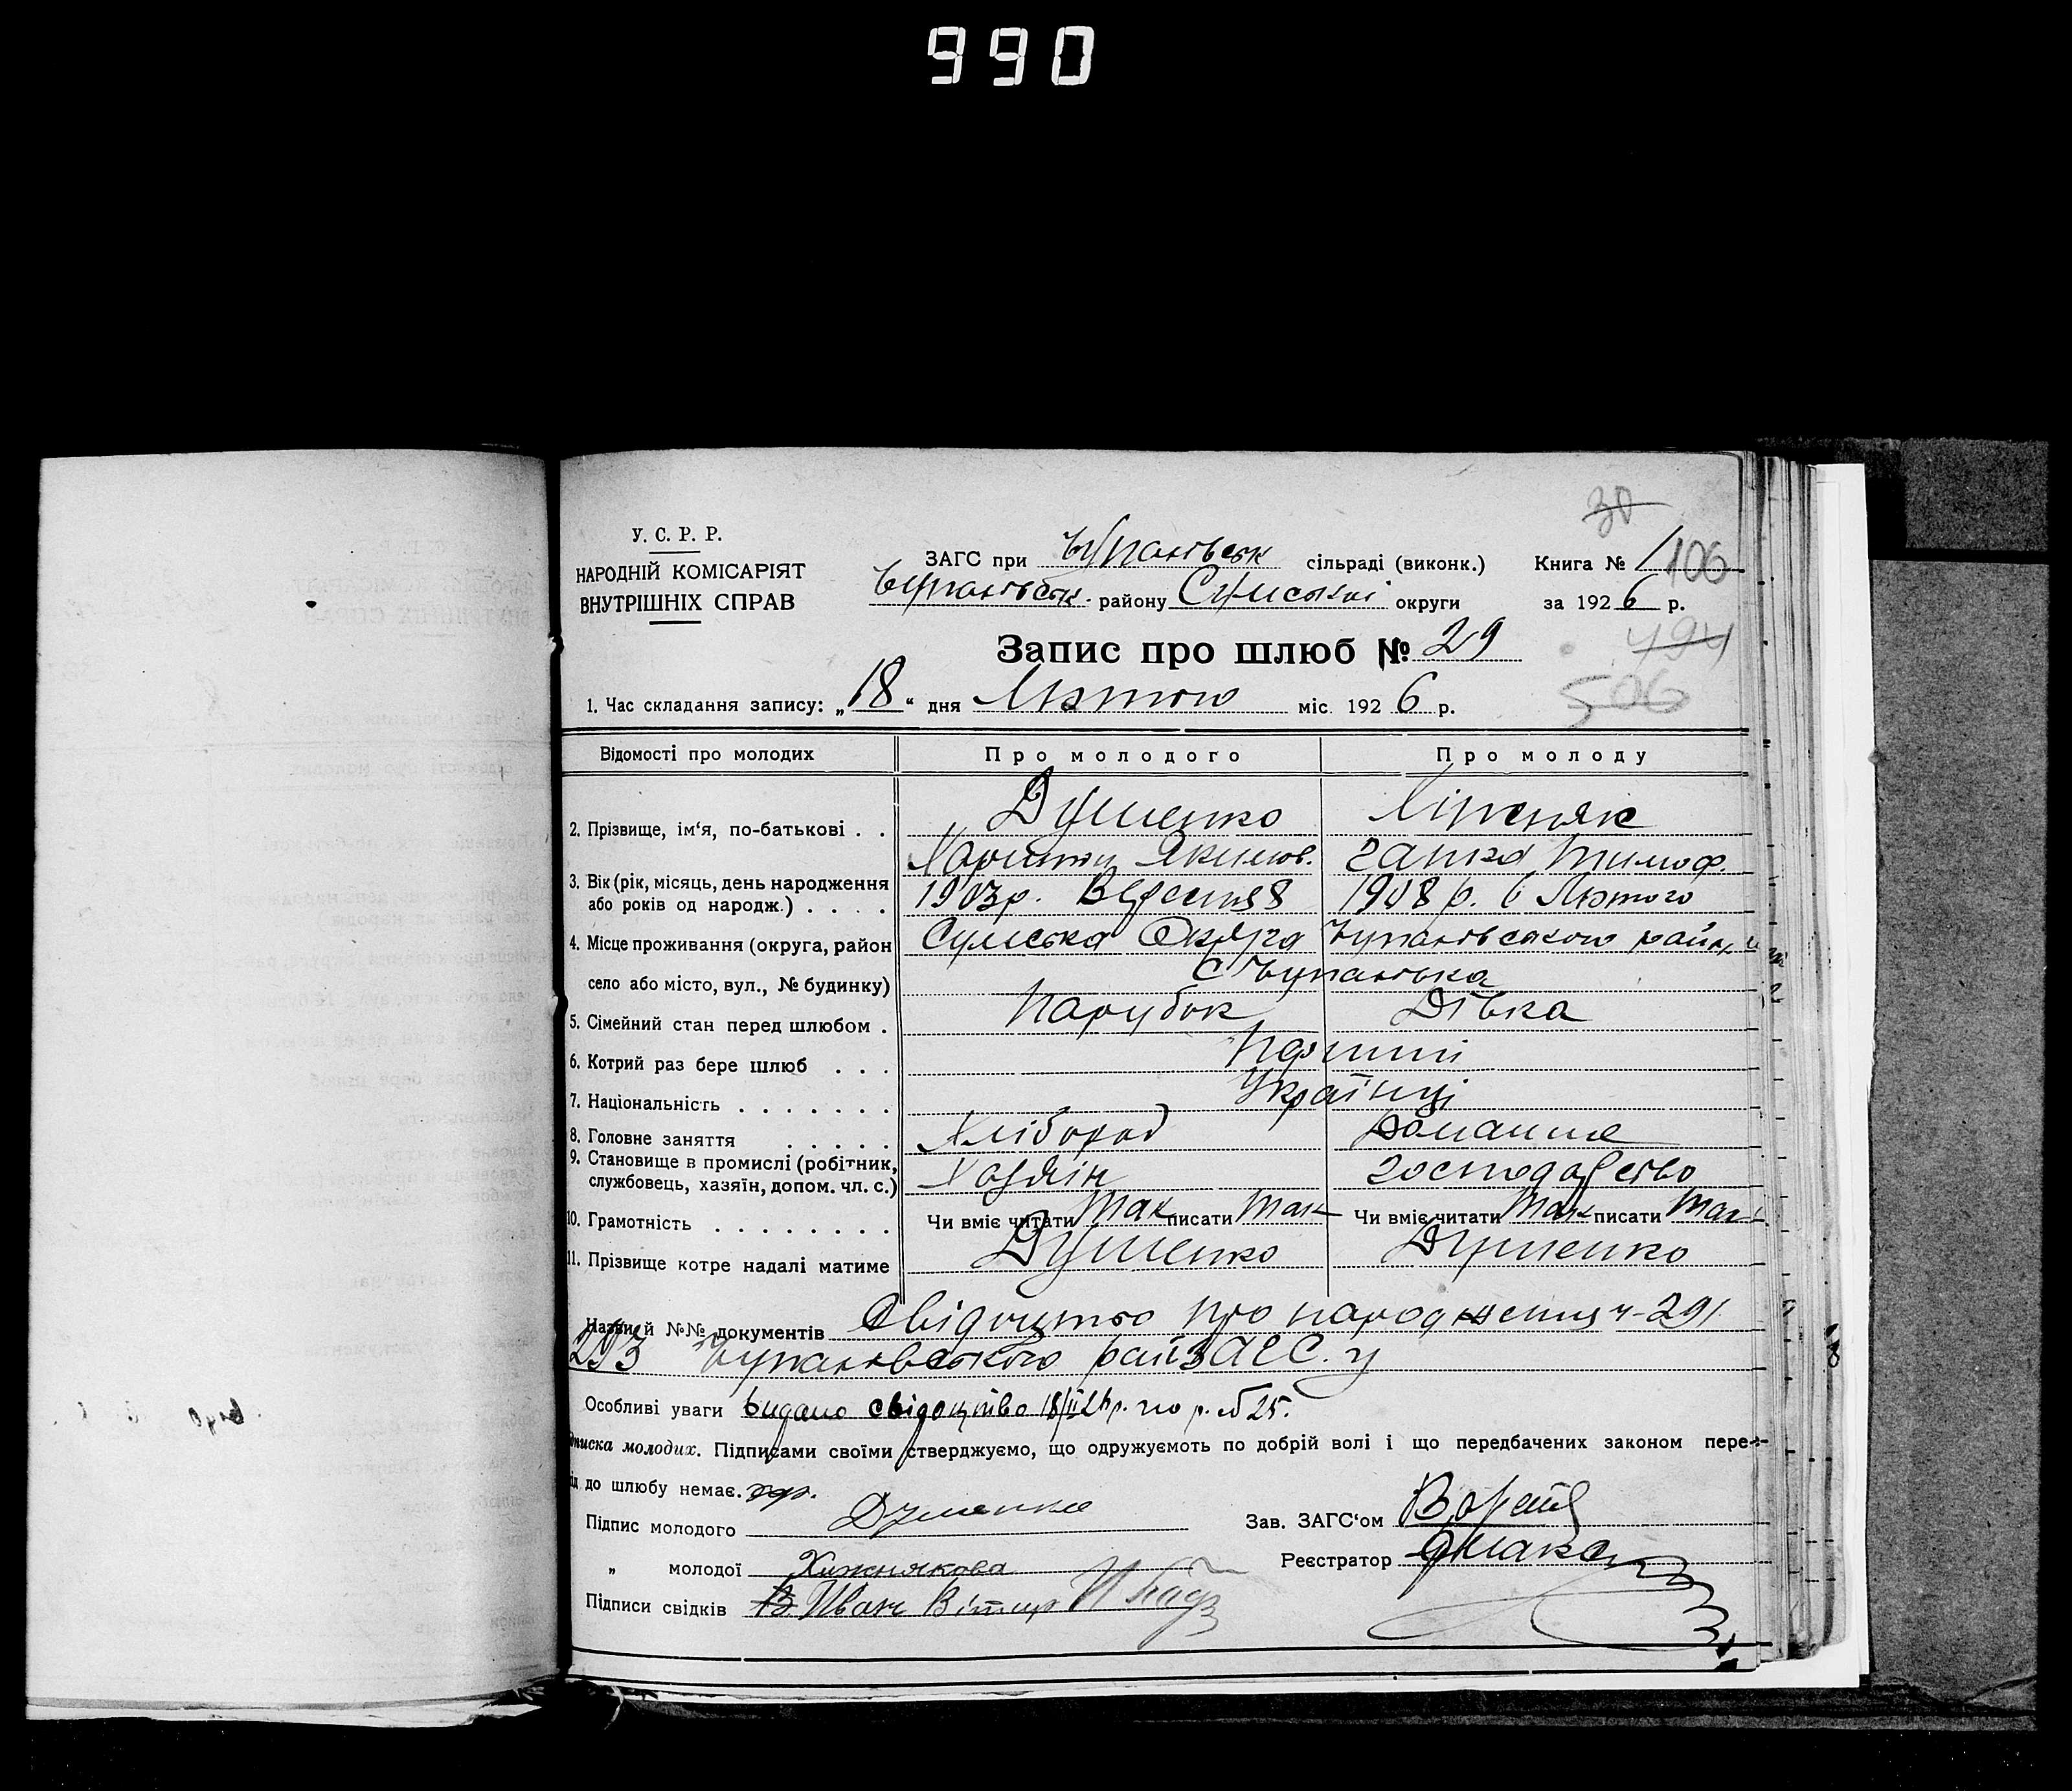 990
30
У. С. Р. Р.
НАРОДНІЙ КОМІСАРІЯТ
ВНУТРІШНІХ СПРАВ
ЗАГС при сільраді (виконк.) Книга № 1 106
району Сумської округи за 1926 р.
Запис про шлюб № 29
494
506
1. Час складання запису: „18“ дня Лютого міс. 1926 р.
Відомості про молодих Про молодого Про молоду
2. Прізвище, ім‘я, по-батькові . . Душенко
Харитон Якимов. Ганна Тимоф.
3. Вік (рік, місяць, день народження або років од народж.) . . . . 1903р. Вересня 8 1908 р. 6 Лютого
4. Місце проживання (округа, район Сумська Округа
село або місто, вул., № будинку) с
5. Сімейний стан перед шлюбом . Парубок Дівка
6. Котрий раз бере шлюб . . . Перший
7. Національність . . . . . . . Українці
8. Головне заняття . . . . . Хлібороб Домашнє
9. Становище в промислі (робітник, службовець, хазяїн, допом. чл. с.) Хазяїн господарство
10. Грамотність . . . . . . . . Чи вміє читати Так писати Так Чи вміє читати Так писати Так
11. Прізвище котре надалі матиме Душенко Душенко
Назви й №№ документів Свідоцтво про народження ч-291
293 райЗАГС.у
Особливі уваги Видано свідоцтво 18/II 26 р. по р. № 25.
писка молодих. Підписами своїми стверджуємо, що одружуємоть по добрій волі і що передбачених законом пере-
ід до шлюбу немає.
Підпис молодого Душенко Зав. ЗАГС‘ом
„ молодої Хижнякова Реєстратор
Підписи свідків Иван